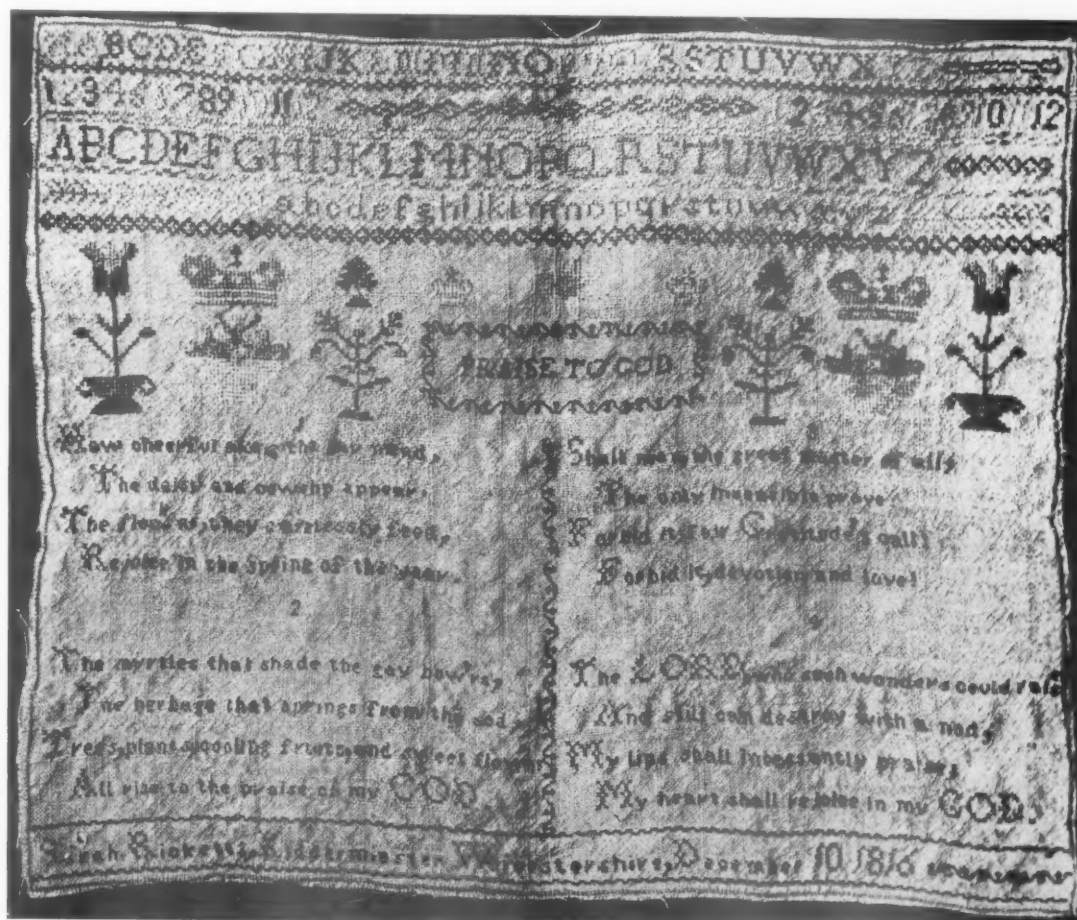 BCDE G HIJK NO SSTUVWX
1234 789 11 2 10 12
ABCDEFGHIJKLMNOPQRSTUVWXYZ
abcdefghijklmnopqrstuvw
PRAISE TO GOD
1
How cheerful along the gay mead,
The daisy and cowslip appear,
The flocks as they carelessly feed,
Rejoice in the spring of the year.
2
The myrtles that shade the gay bow'rs,
The herbage that springs from the sod,
Trees, plants, cooling fruits, and sweet flowers
All rise to the praise of my GOD.
Shall man, the great master of all,
The only insensible prove
Forbid it, fair Gratitude's call!
Forbid it, devotion and love!
4
The LORD, who such wonders could raise
And still can destroy with a nod,
My lips shall incessantly praise,
My heart shall rejoice in my GOD.
Ricketts, Kidderminster Worcestershire, December 10 1816